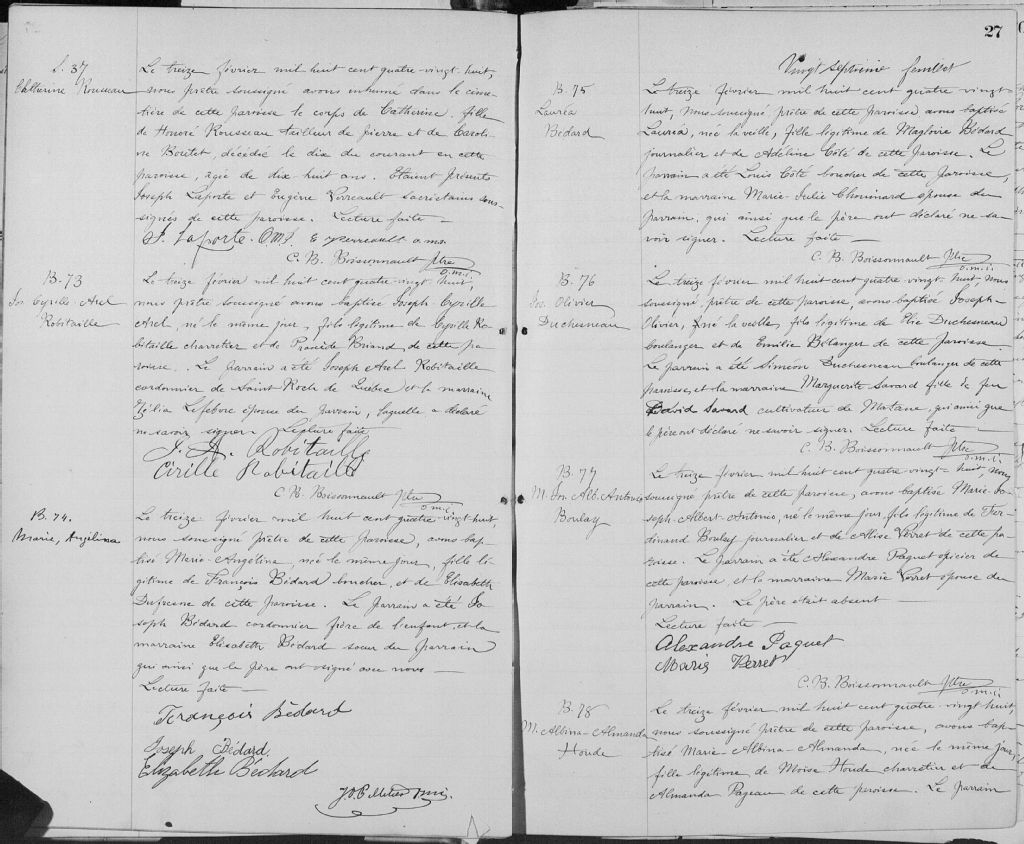 S. 37
Catherine Rousseau
Le treize février mil huit cent quatre-vingt-huit,
nous prêtre soussigné avons inhumé dans le cime-
tière de cette paroisse le corps de Catherine, fille
de Honoré Rousseau tailleur de pierre et de Caroli-
ne Boutet, décédée le dix du courant en cette
paroisse, agée de dix huit ans. Etaient présents
Joseph Laporte et Eugène Verreault sacristains sous-
signés de cette paroisse. Lecture faite —
J. Laporte. O.M.I. E Verreault o.m.i.
C. B. Boissonnault Ptre
o.m.i.
B. 73
Jos. Cyrille Arel
Robitaille
Le treize février mil huit cent quatre-vingt huit,
nous prêtre soussigné avons baptisé Joseph Cyrille
Arel, né le même jour, fils légitime de Cyrille Ro-
bitaille charretier et de Briand, de cette pa-
roisse. Le parrain a été Joseph Arel Robitaille
cordonnier de Saint Roch de Québec et la marraine
Lefebvre épouse du parrain, laquelle a déclaré
ne savoir signer. Lecture faite
J. A. Robitaille
Cirille Robitaille
C. B. Boissonnault Ptre
o.m.i.
B. 74.
Marie, Angélina
Le treize février mil huit cent quatre-vingt huit,
nous soussigné prêtre de cette paroisse, avons bap-
tisé Marie-Angélina, née le même jour, fille lé-
gitime de François Bédard boucher, et de Elisabeth
Dufresne de cette paroisse. Le parrain a été Jo-
seph Bédard cordonnier frère de l'enfant, et la
marraine Elisabeth Bédard soeur du parrain
qui ainsi que le père ont signé avec nous —
Lecture faite —
François Bédard
Joseph Bédard
Elizabeth Bédard
27
Vingt septième feuillet
B. 75
Lauréa
Bédard
Le treize février mil huit cent quatre vingt
huit, nous soussigné prêtre de cette paroisse avons baptisé
Lauréa, née la veille, fille légitime de Magloire Bédard
journalier et de Adéline Côté de cette paroisse. Le
parrain a été Louis Côté boucher de cette paroisse,
et la marraine Marie-Julie Chouinard épouse du
parrain, qui ainsi que le père ont déclaré ne sa-
voir signer. Lecture faite —
C. B. Boissonnault Ptre
o.m.i.
B. 76
Jos. Olivier
Duchesneau
Le treize février mil huit cent quatre vingt huit, nous
soussigné, prêtre de cette paroisse, avons baptisé Joseph-
Olivier, né la veille, fils légitime de Elie Duchesneau
boulanger et de Emilie Bélanger de cette paroisse.
Le parrain a été Siméon Duchesneau boulanger de cette
paroisse, et la marraine Marguerite Savard fille de feu
David Savard cultivateur de Matane, qui ainsi que
le père ont déclaré ne savoir signer. Lecture faite —
C. B. Boissonnault Ptre
o.m.i.
B. 77
M. Jos. Alb. Antonio
Boulay
Le treize février mil huit cent quatre vingt huit, nous
soussigné prêtre de cette paroisse, avons baptisé Marie-Jo-
seph-Albert-Antonio, né le même jour, fils légitime de Fer-
dinand Boulay journalier et de Alise Verret de cette pa-
roisse. Le parrain a été Alexandre Paquet épicier de
cette paroisse, et la marraine Marie Verret épouse du
parrain. Le père était absent —
Lecture faite —
Alexandre Paquet
Marie Verret
C. B. Boissonnault Ptre
o.m.i.
B. 78
M. Albina-Almanda
Houde
Le treize février mil huit cent quatre-vingt huit,
nous soussigné prêtre de cette paroisse, avons bap-
tisé Marie-Albina-Almanda, née le même jour,
fille légitime de Moise Houde charretier et de
Almanda Pageau de cette paroisse. Le parrain